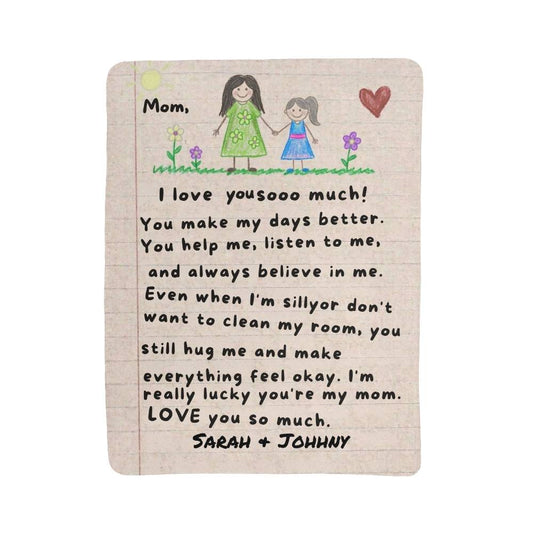 Mom,
I love yousooo much!
You make my days better.
You help me, listen to me,
and always believe in me.
Even when I'm sillyor don't
want to clean my room, you
still hug me and make
everything feel okay. I'm
really lucky you're my mom.
LOVE you so much.
SARAH + JOHHNY